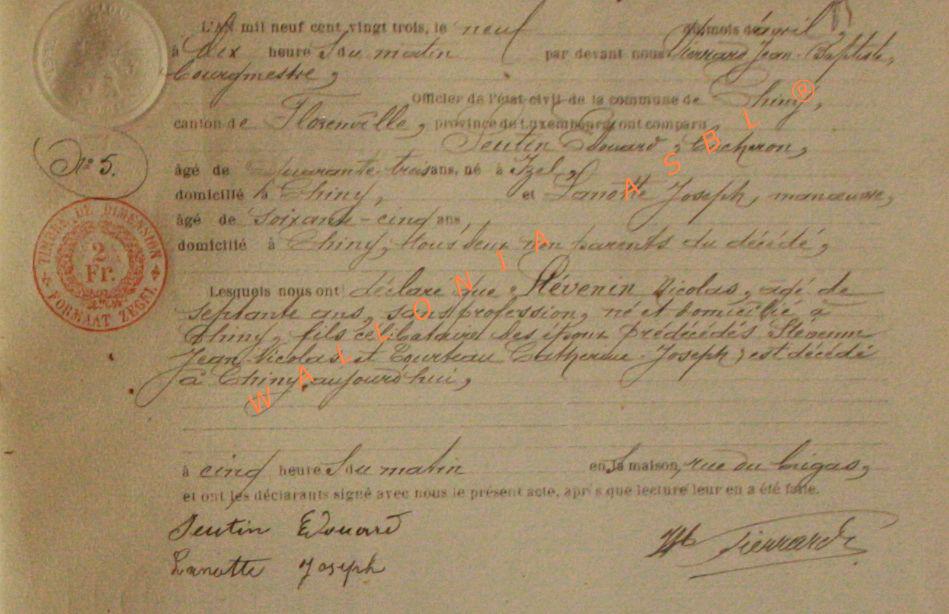 L'AN mil neuf cent vingt trois, le neuf du mois d'avril,
à dix heures du matin par devant nous Pierrard Jean-Baptiste,
bourgmestre,
Officier de l'état civil de la commune de Chiny,
canton de Florenville, province de Luxembourg ont comparu
Seutin Edouard, bucheron,
N° 5.
âgé de Quarante trois ans, né à Izel,
domicilié à Chiny, et Lanotte Joseph, manœuvre,
âgé de soixante-cinq ans,
domicilié à Chiny, tous deux non parents du décédé,
TIMBRE DE DIMENSION
2
Fr.
FORMAAT ZEGEL
Lesquels nous ont déclaré que Stévenin Nicolas, agé de
septante ans, sans profession, né et domicilié à
Chiny, fils célibataire des époux prédécédés Stévenin
Jean Nicolas et Catherine-Joseph, est décédé
à Chiny aujourd'hui,
à cinq heures du matin en sa maison, rue du
et ont les déclarants signé avec nous le présent acte, après que lecture leur en a été faite.
Seutin Edouard
Lanotte Joseph
Pierrard
WALLONIA ASBL ®